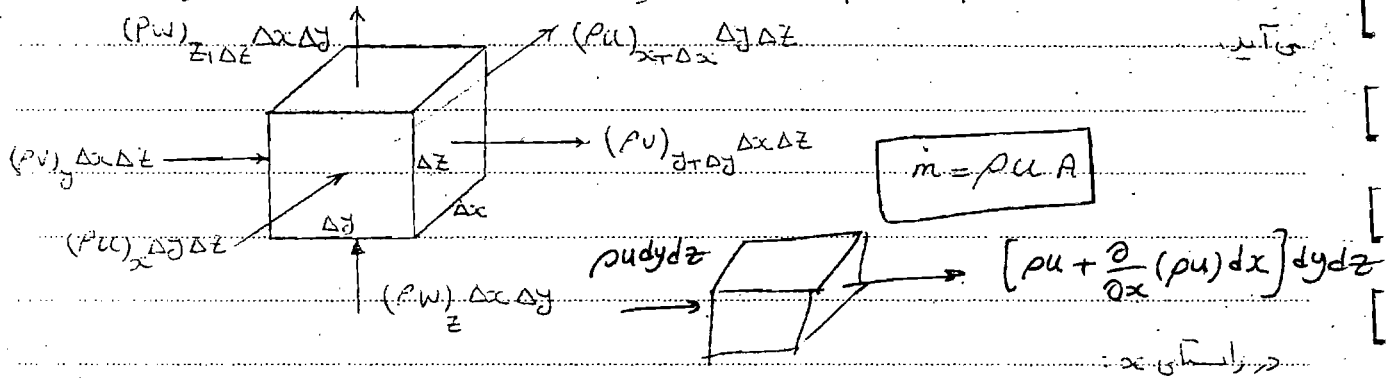 (ρw)_{z+Δz} Δx Δy
(ρu)_{x+Δx} Δy Δz
می‌آید.
(ρv)_y Δx Δz
Δz
(ρv)_{y+Δy} Δx Δz
ṁ = ρuA
Δy
Δx
(ρu)_x Δy Δz
(ρw)_z Δx Δy
ρu dy dz
[ρu + ∂/∂x (ρu) dx] dy dz
در راستای x :